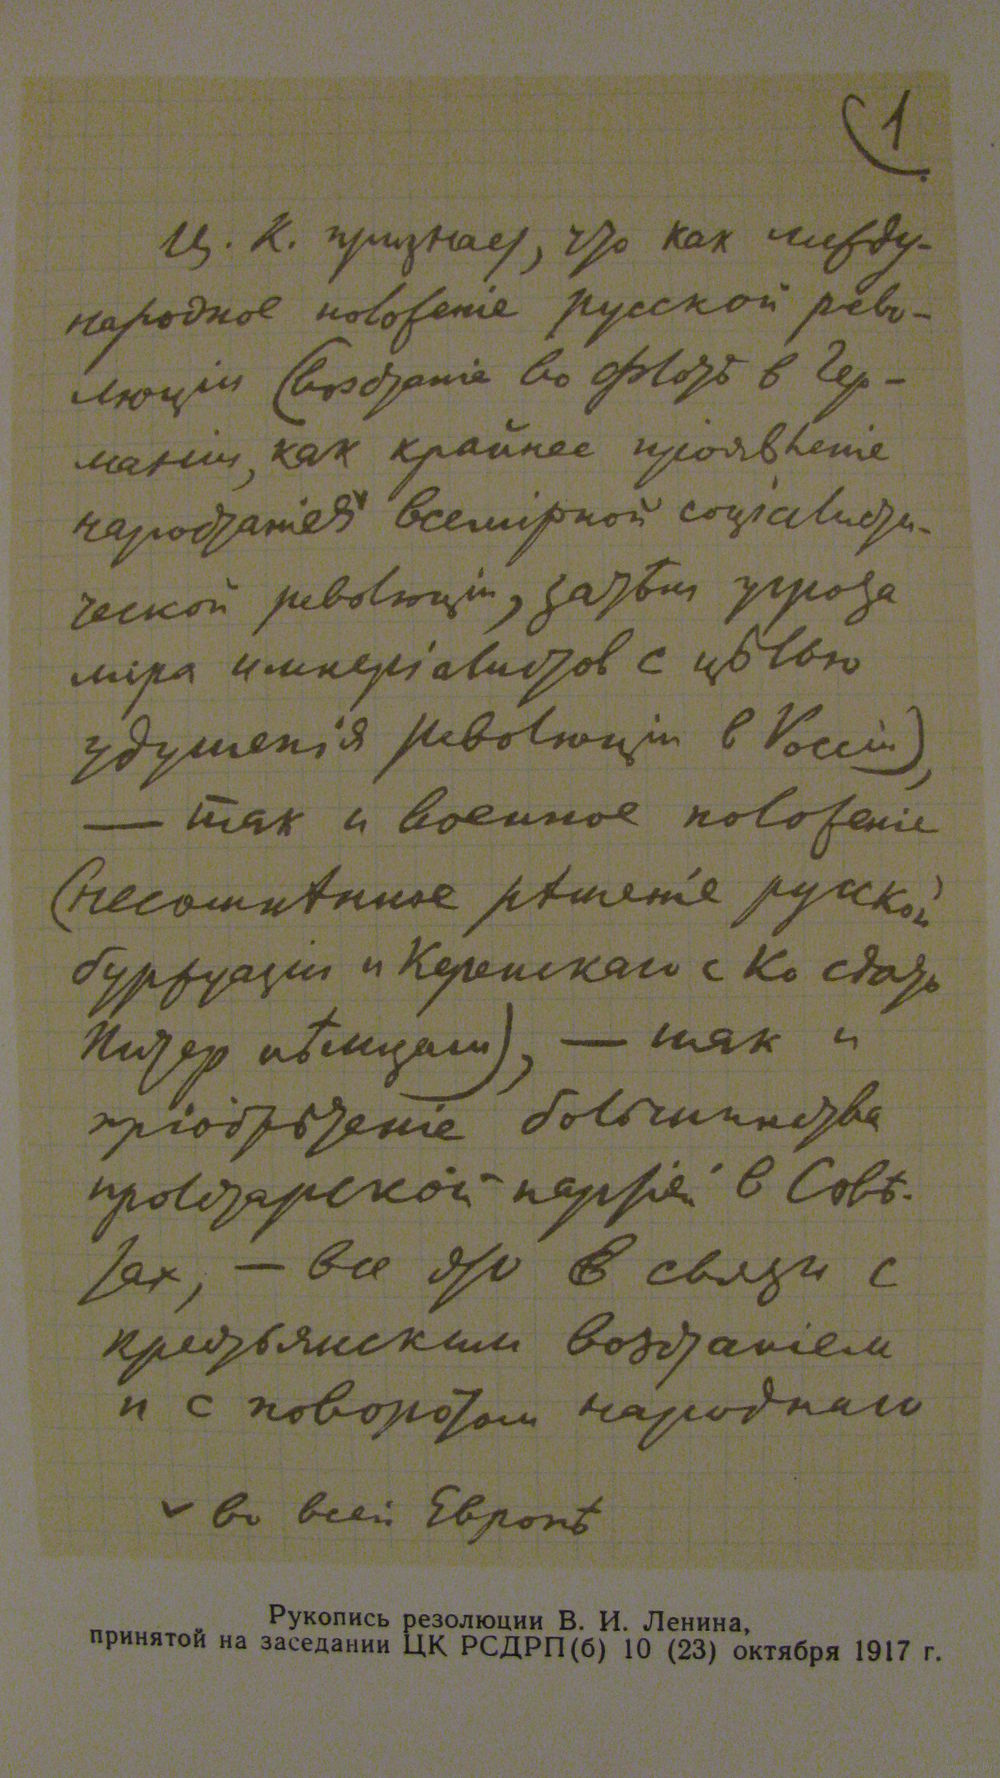 1
Ц. К. признает, что как между-
народное положеніе русской рево-
люціи (возстаніе во флотѣ в Гер-
маніи, как крайнее проявленіе
наростанія ✓ всемірной соціалисти-
ческой революціи, затѣм угроза
мира имперіалистов с цѣлью
удушенія революціи в Россіи),
— так и военное положеніе
(несомнѣнное рѣшеніе русской
буржуазіи и Керенскаго с Ко сдать
Питер нѣмцам), — так и
пріобрѣтеніе большинства
пролетарской партіей в Совѣ-
тах, — все это в связи с
крестьянским возстаніем
и с поворотом народнаго
✓ во всей Европѣ
Рукопись резолюции В. И. Ленина,
принятой на заседании ЦК РСДРП(б) 10 (23) октября 1917 г.